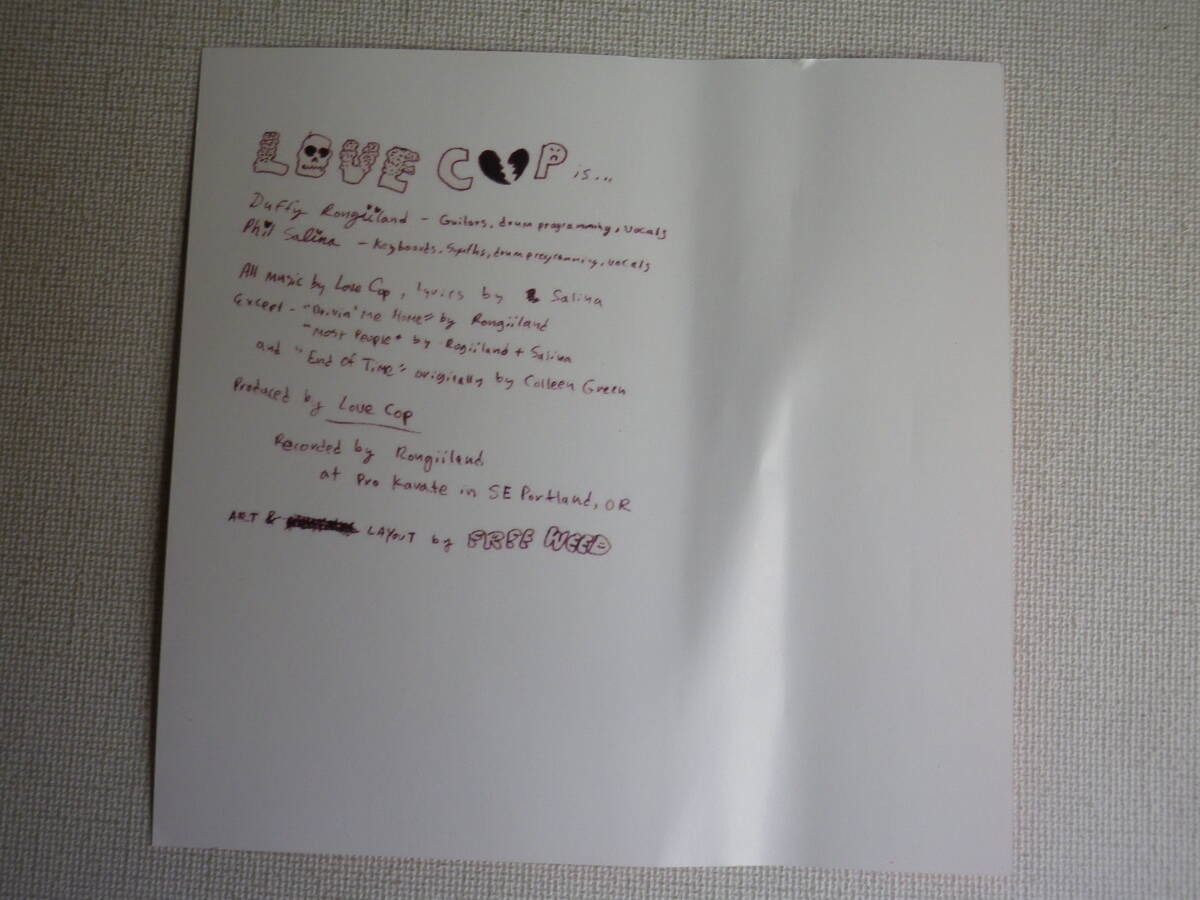 LOVE COP is....
Duffy Rongiiland - Guitars, drum programming, vocals
Phil Salina - Keyboards, Synths, drum programming, vocals
All music by Love Cop, lyrics by Salina
Except - "Drivin' Me Home" by Rongiiland
"Most People" by Rogiiland + Salina
and "End Of Time" originally by Colleen Green
Produced by Love Cop
Recorded by Rongiiland
at Pro Karate in SE Portland, OR
ART & LAYOUT by FREE WEED